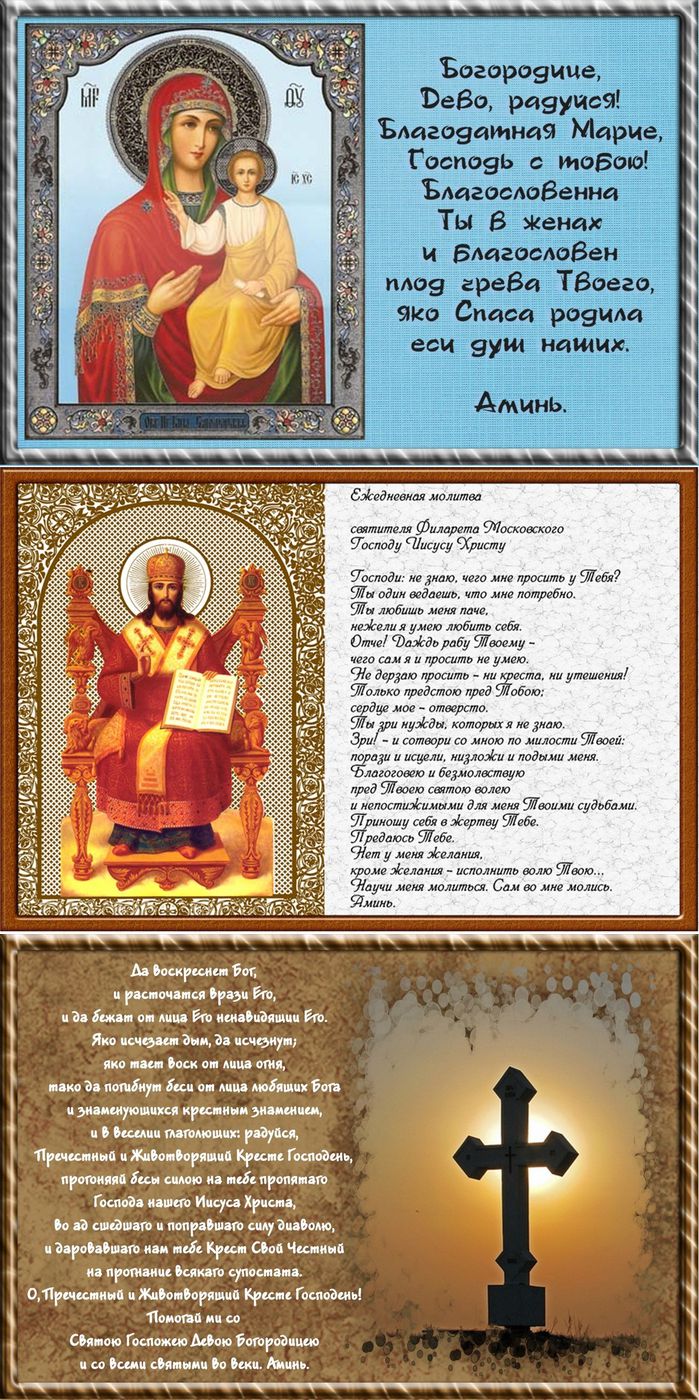 Богородице,
Дево, радуйся!
Благодатная Марие,
Господь с тобою!
Благословенна
Ты в женах
и благословен
плод чрева Твоего,
яко Спаса родила
еси душ наших.
Аминь.
Ежедневная молитва
святителя Филарета Московского
Господу Иисусу Христу
Господи: не знаю, чего мне просить у Тебя?
Ты один ведаешь, что мне потребно.
Ты любишь меня паче,
нежели я умею любить себя.
Отче! Даждь рабу Твоему –
чего сам я и просить не умею.
Не дерзаю просить – ни креста, ни утешения!
Только предстою пред Тобою;
сердце мое – отверсто.
Ты зри нужды, которых я не знаю.
Зри! – и сотвори со мною по милости Твоей:
порази и исцели, низложи и подыми меня.
Благоговею и безмолвствую
пред Твоею святою волею
и непостижимыми для меня Твоими судьбами.
Приношу себя в жертву Тебе.
Предаюсь Тебе.
Нет у меня желания,
кроме желания – исполнить волю Твою...
Научи меня молиться. Сам во мне молись.
Аминь.
Да воскреснет Бог,
и расточатся врази Его,
и да бежат от лица Его ненавидящии Его.
Яко исчезает дым, да исчезнут;
яко тает воск от лица огня,
тако да погибнут беси от лица любящих Бога
и знаменующихся крестным знамением,
и в веселии глаголющих: радуйся,
Пречестный и Животворящий Кресте Господень,
прогоняяй бесы силою на тебе пропятаго
Господа нашего Иисуса Христа,
во ад сшедшаго и поправшаго силу диаволю,
и даровавшаго нам тебе Крест Свой Честный
на прогнание всякаго супостата.
О, Пречестный и Животворящий Кресте Господень!
Помогай ми со
Святою Госпожею Девою Богородицею
и со всеми святыми во веки. Аминь.